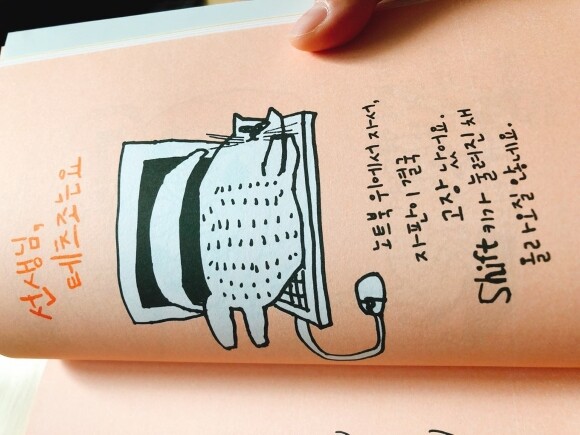 선생님,
테츠조는요
노트북 위에서 자서,
자판이 결국
고장 났어요.
Shift 키가 눌려진 채
올라오질 않네요.